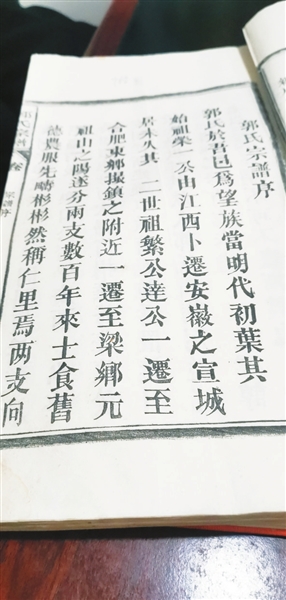 郭氏宗譜序
郭氏於吾邑為望族當明代初葉其
始祖榮一公由江西卜遷安徽之宣城
居未久其二世祖繁公達公一遷至
合肥東鄉撮鎮之附近一遷至梁鄉元
祖山之陽遂分兩支數百年來士食舊
德農服先疇彬彬然稱仁里焉两支向